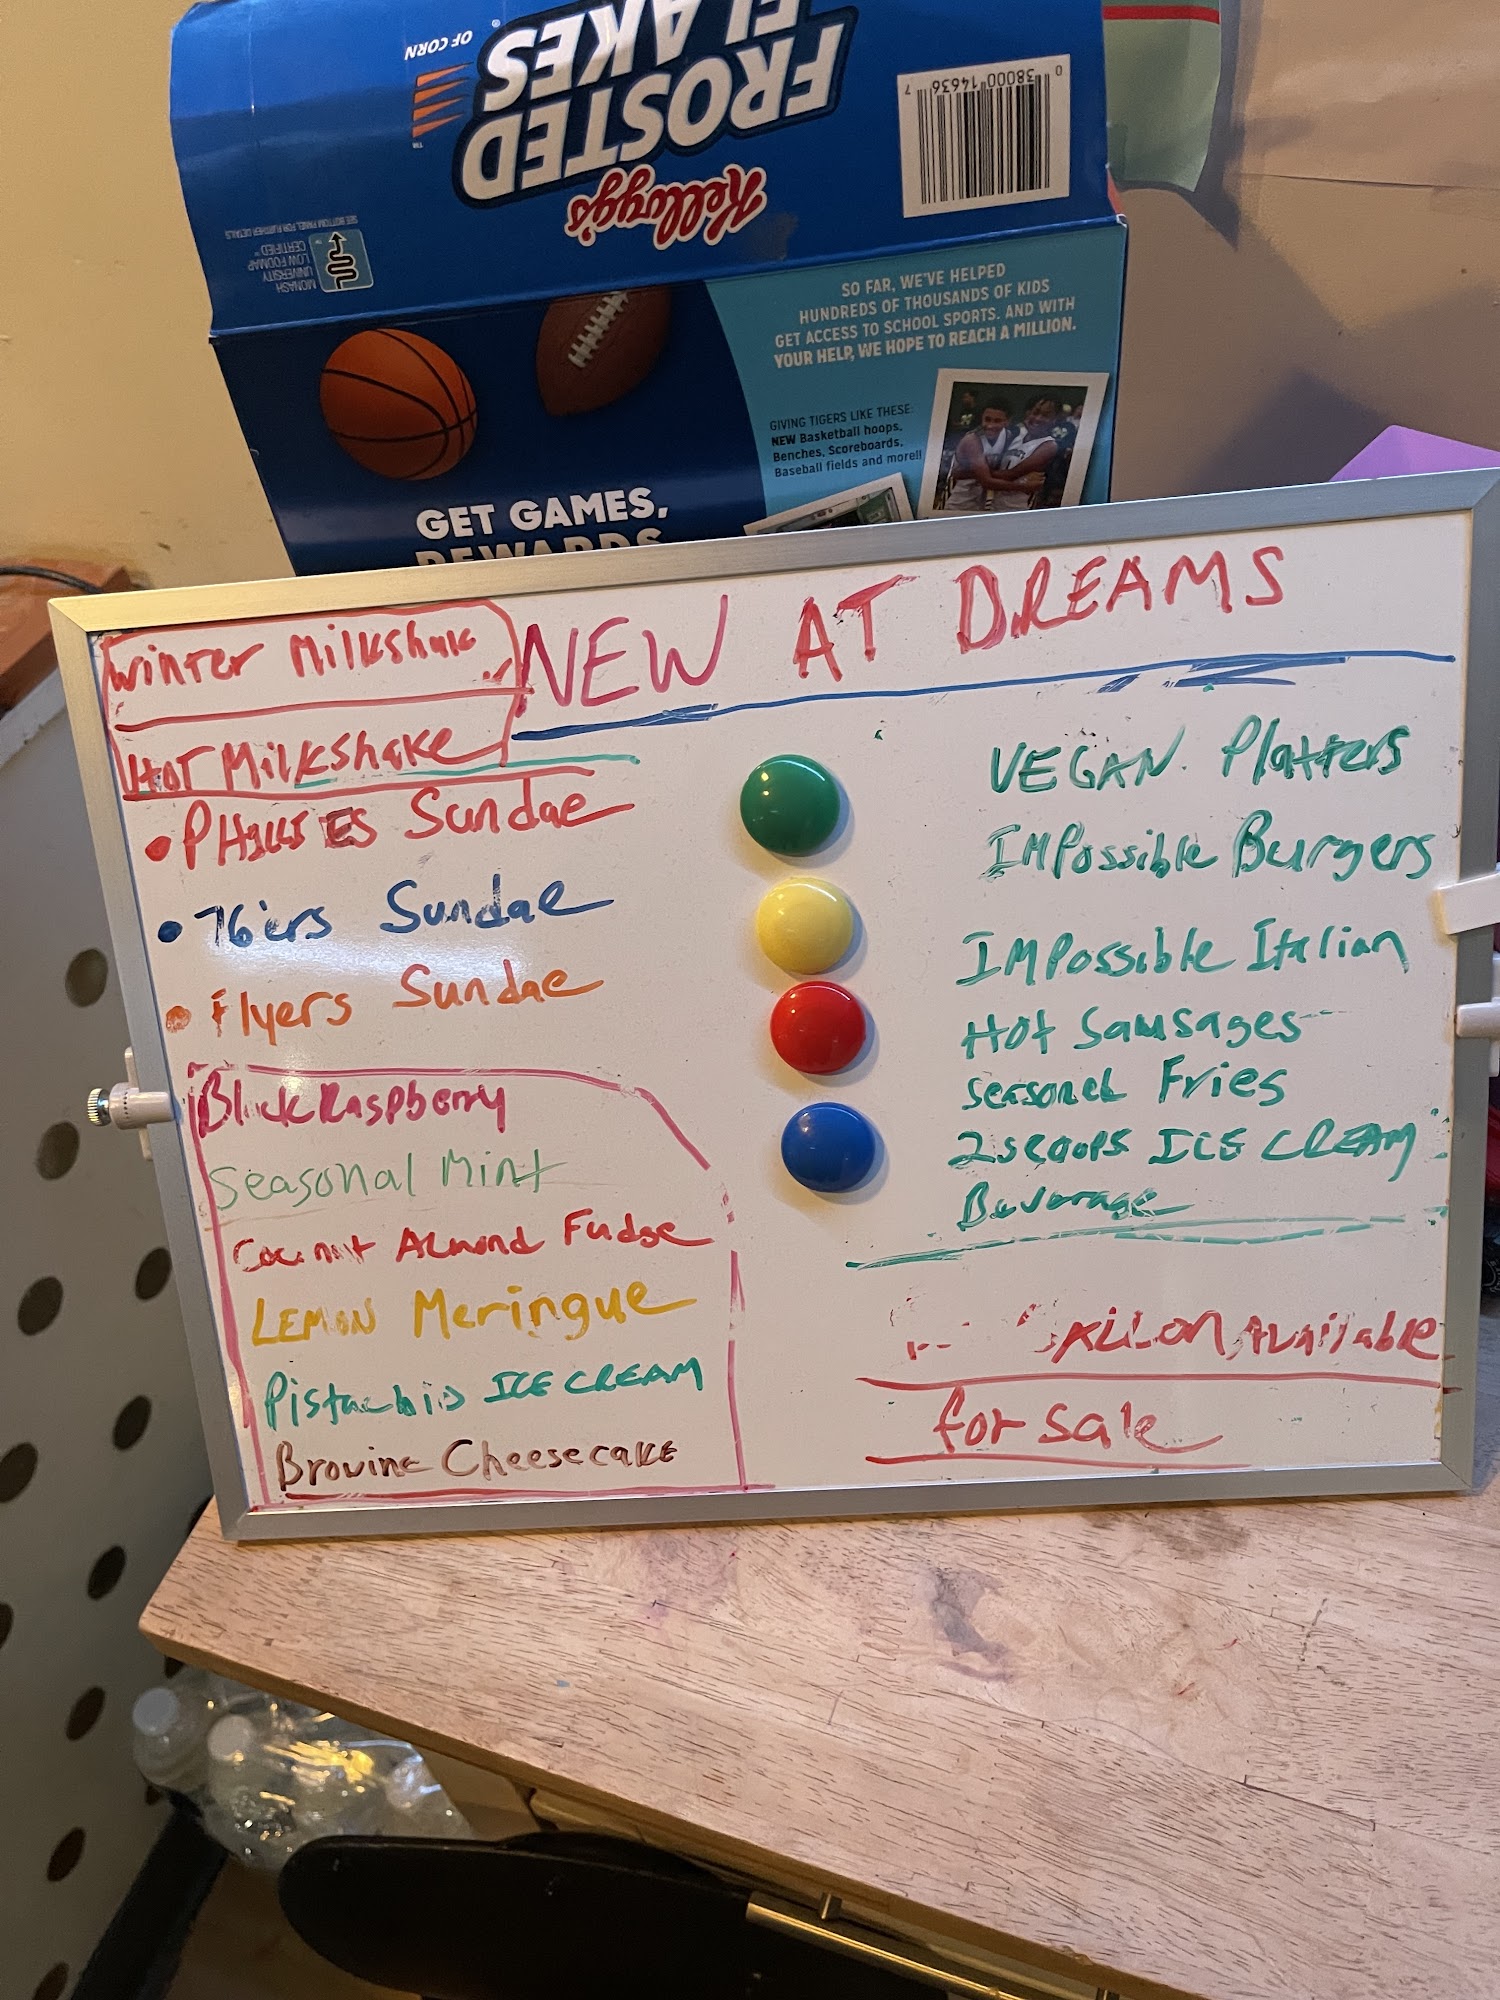 FROSTED
FLAKES
OF CORN
Kellogg's
0 38000 14636 7
MONASH
UNIVERSITY
LOW FODMAP
CERTIFIED™
SEE BOTTOM PANEL FOR FURTHER DETAILS
SO FAR, WE'VE HELPED
HUNDREDS OF THOUSANDS OF KIDS
GET ACCESS TO SCHOOL SPORTS. AND WITH
YOUR HELP, WE HOPE TO REACH A MILLION.
GIVING TIGERS LIKE THESE:
NEW Basketball hoops,
Benches, Scoreboards,
Baseball fields and more!!
GET GAMES,
REWARDS
NEW AT DREAMS
Winter Milkshake
Hot Milkshake
• PHillIES Sundae
• 76ers Sundae
• Flyers Sundae
Black Raspberry
Seasonal Mint
Coconut Almond Fudge
LEMON Meringue
Pistachio ICE CREAM
Browine Cheesecake
VEGAN Platters
IMPossible Burgers
IMPossible Italian
Hot Sausages
Seasoned Fries
2 scoops ICE CREAM
Beverage
Available
for sale